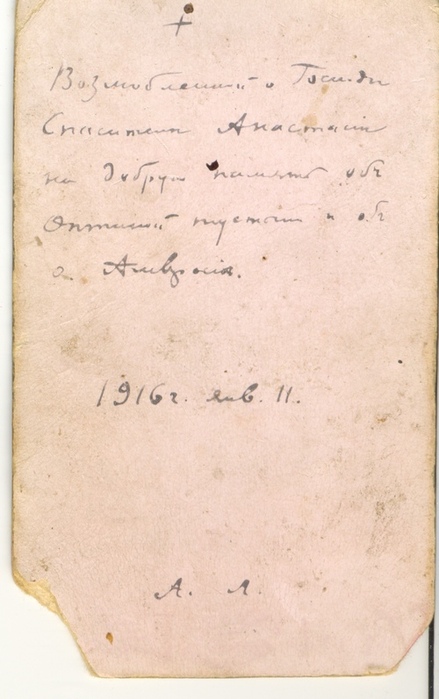 +
Возлюбленной о Господи
Спасители Анастасии
на добрую память объ
Оптиной пустыни и объ
о. Амвросiи.
1916 г. янв. 11.
А. Л.